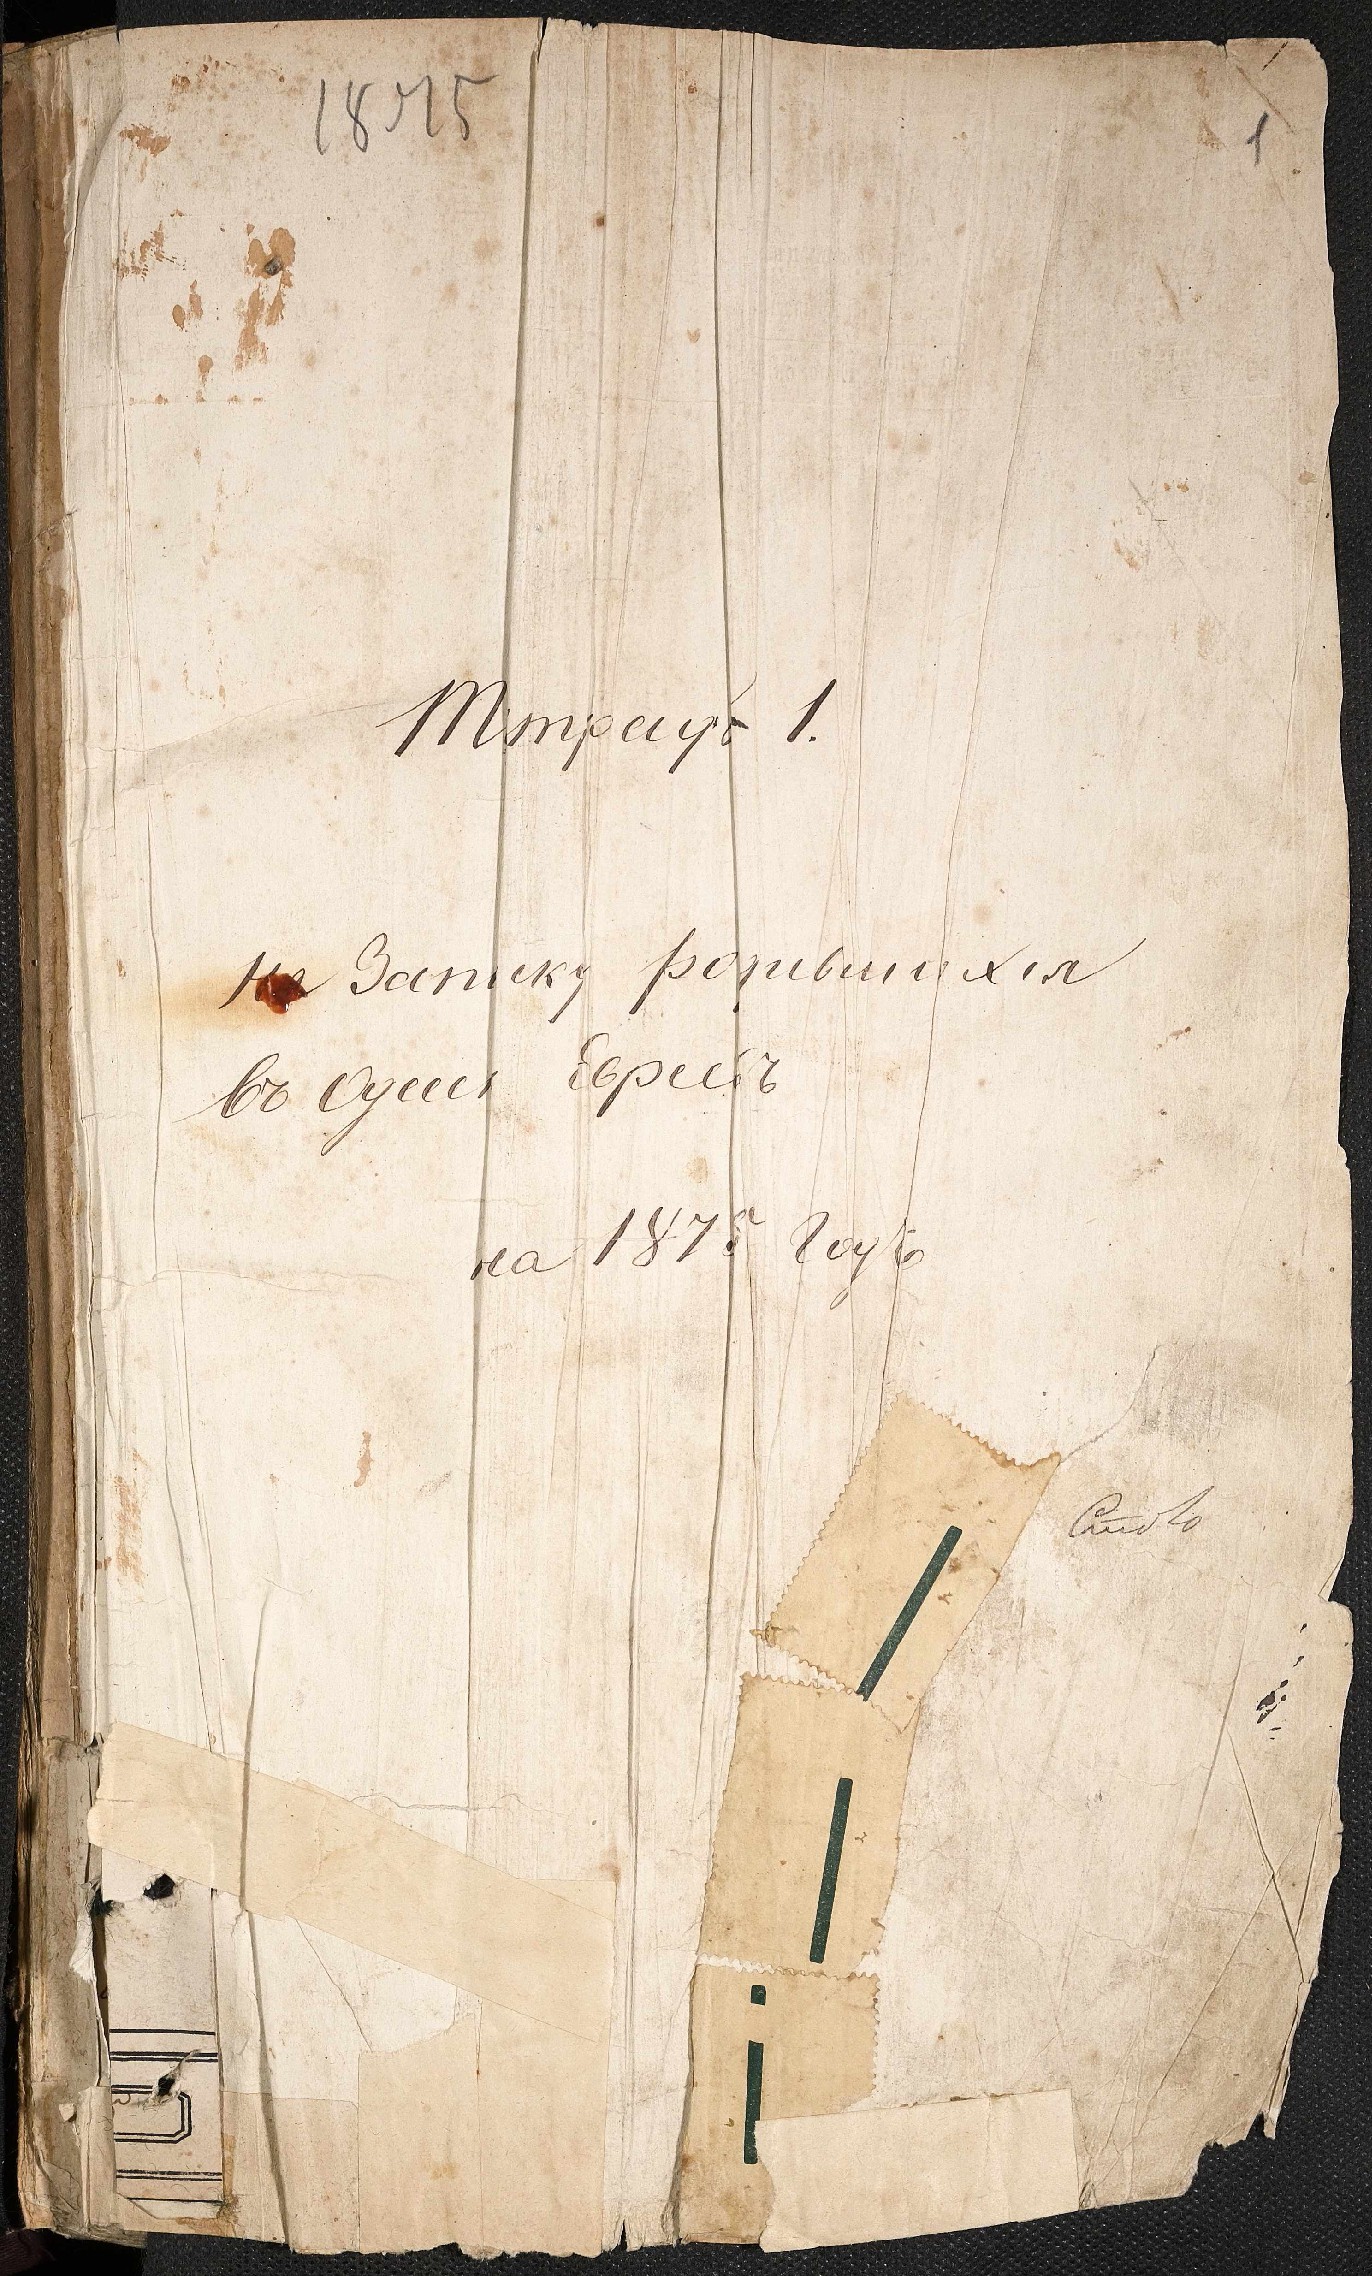 1875
1
Тетрадь 1.
на Записку родившихся
въ Одессѣ Евреевъ
на 1875 Годъ